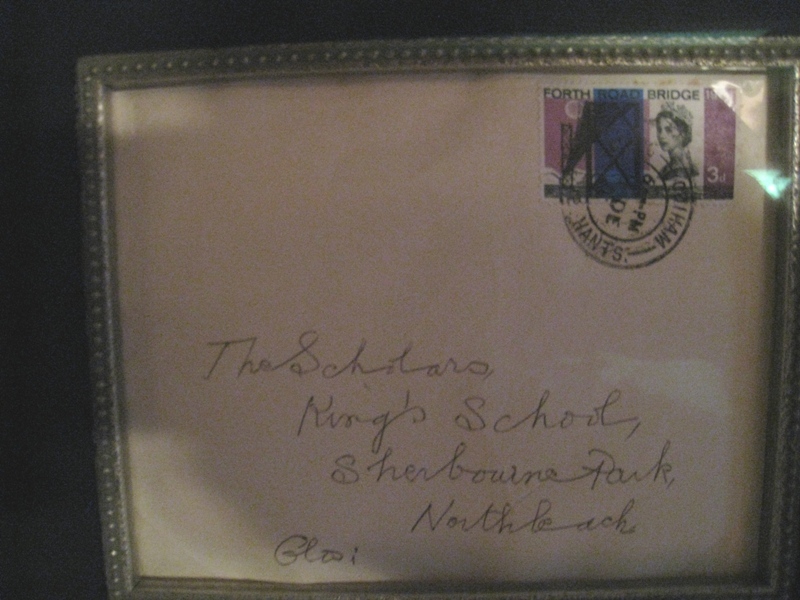 FORTH ROAD BRIDGE
3d
PM
DE
HANTS.
The Scholars,
King's School,
Sherbourne Park,
Northleach,
Glos: